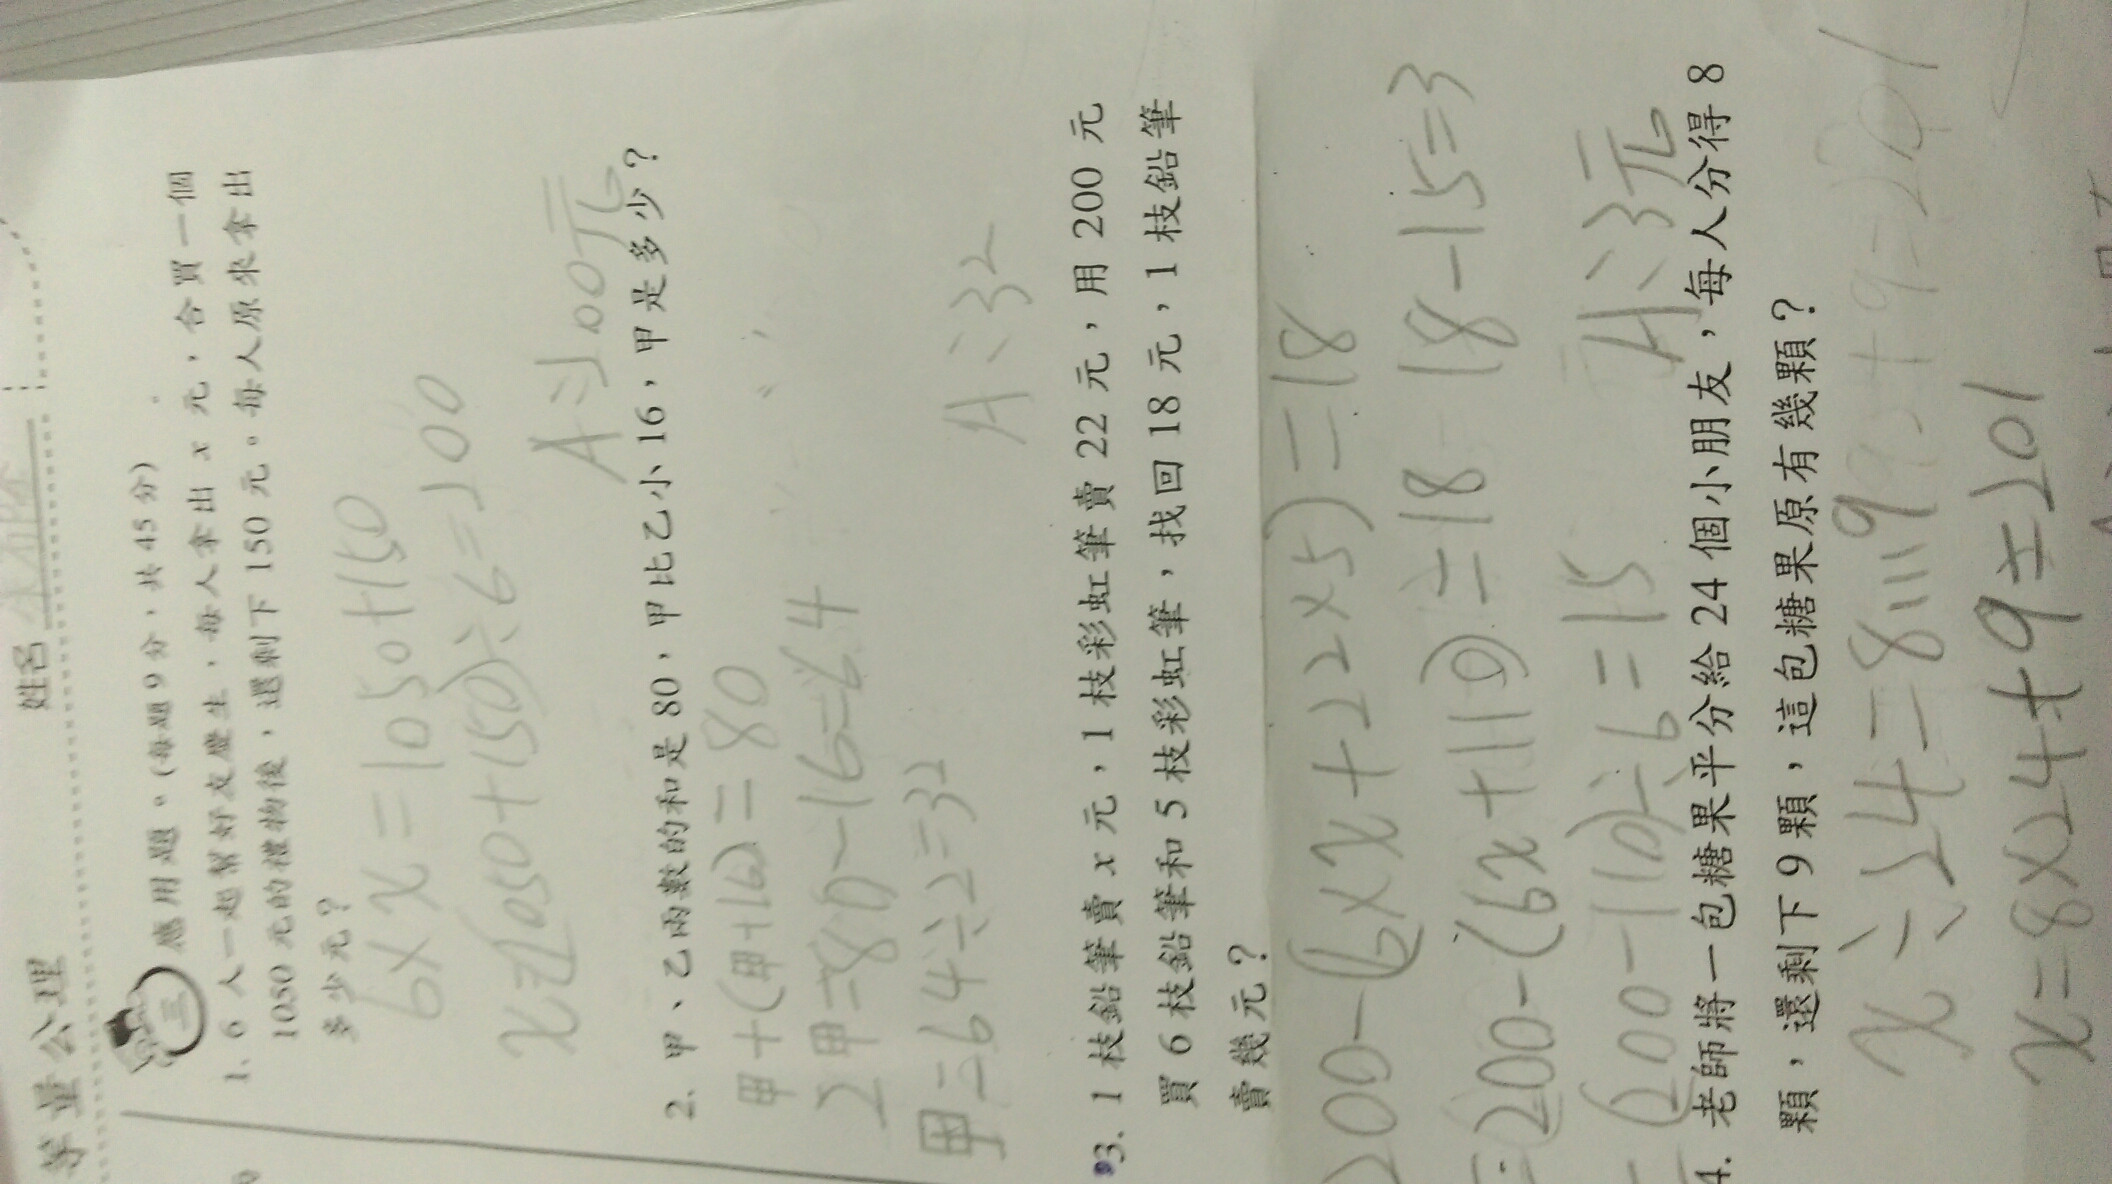 等量公理
姓名
三 應用題。(每題9分,共45分)
1. 6人一起幫好友慶生,每人拿出 x 元,合買一個
1050元的禮物後,還剩下150元。每人原來拿出
多少元?
6×x=1050+150
x=(1050+150)÷6=200
A:200元
2. 甲、乙兩數的和是80,甲比乙小16,甲是多少?
甲+(甲+16)=80
2甲=80-16=64
甲=64÷2=32
A:32
3. 1枝鉛筆賣 x 元,1枝彩虹筆賣22元,用200元
買6枝鉛筆和5枝彩虹筆,找回18元,1枝鉛筆
賣幾元?
200-(6×x+22×5)=18
=200-(6x+110)=18
18-15=3
=(200-110)÷6=15
A:3元
4. 老師將一包糖果平分給24個小朋友,每人分得8
顆,還剩下9顆,這包糖果原有幾顆?
x÷24=8…9
x=8×24+9=201